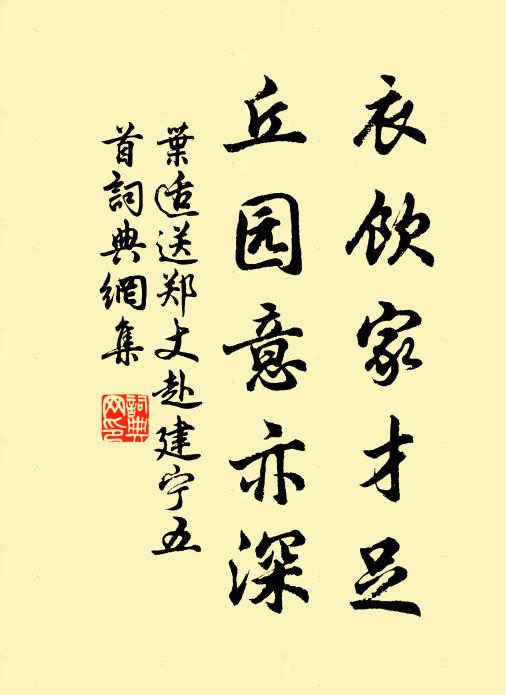 衣饮家才足
丘园意亦深
葉适送郑丈赴建宁五
首詞典網集
詞典
网印